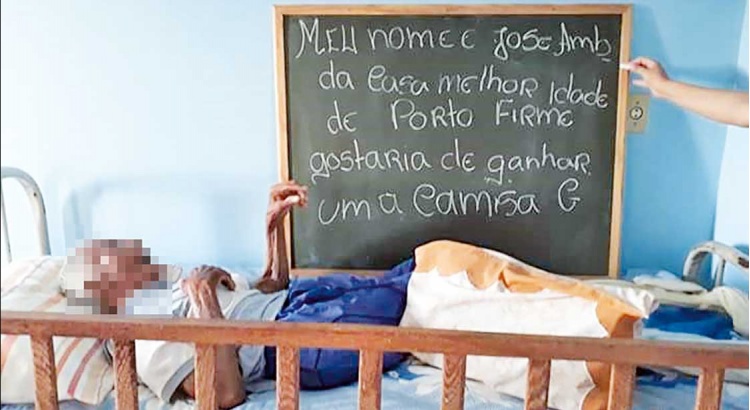 MEU nome e José Amb
da Casa melhor Idade
de Porto Firme
gostaria de ganhar
uma camisa G